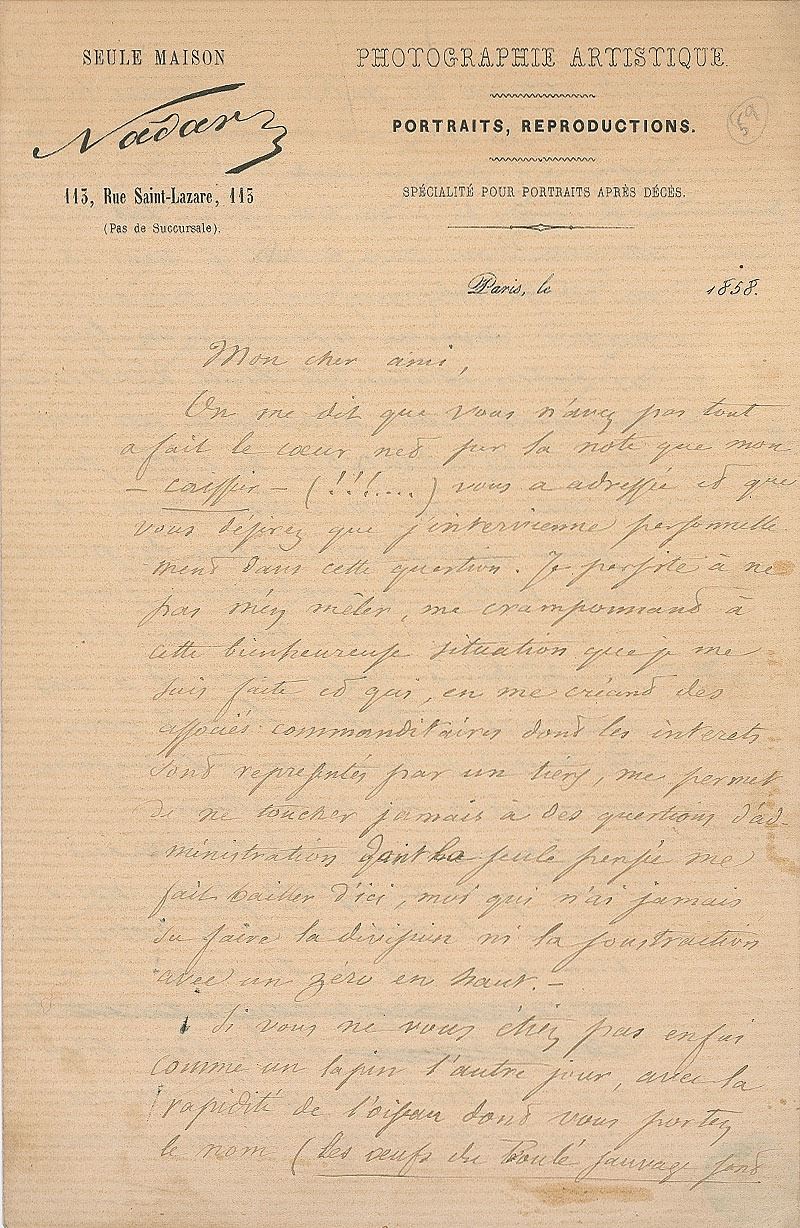 SEULE MAISON
Nadar
113, Rue Saint-Lazare, 113
(Pas de Succursale).
PHOTOGRAPHIE ARTISTIQUE.
PORTRAITS, REPRODUCTIONS.
SPÉCIALITÉ POUR PORTRAITS APRÈS DÉCÈS.
59
Paris, le 1858.
Mon cher ami,
On me dit que vous n'avez pas tout
a fait le cœur net sur la note que mon
— caissier — (!!!....) vous a adressée et que
vous désirez que j'intervienne personnelle
ment dans cette question. Je persiste à ne
pas m'en mêler, me cramponnant à
cette bienheureuse situation que je me
suis faite et qui, en me créant des
associés commanditaires dont les interets
sont representés par un tiers, me permet
de ne toucher jamais à des questions d'ad-
ministration dont la seule pensée me
fait bailler d'ici, moi qui n'ai jamais
su faire la division ni la soustraction
avec un zéro en haut. —
Si vous ne vous étiez pas enfui
comme un lapin l'autre jour, avec la
rapidité de l'oiseau dont vous portez
le nom (les œufs du sauvage sont